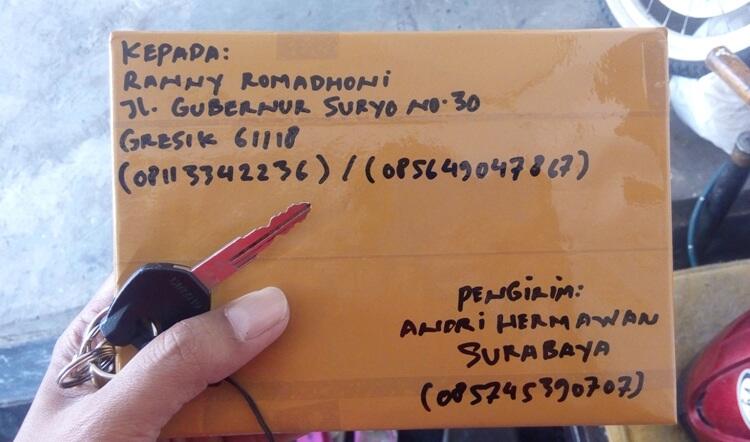 KEPADA:
RANNY ROMADHONI
JL. GUBERNUR SURYO NO.30
GRESIK 61118
(08113342236) / (085649047867)
PENGIRIM:
ANDRI HERMAWAN
SURABAYA
(085745390707)